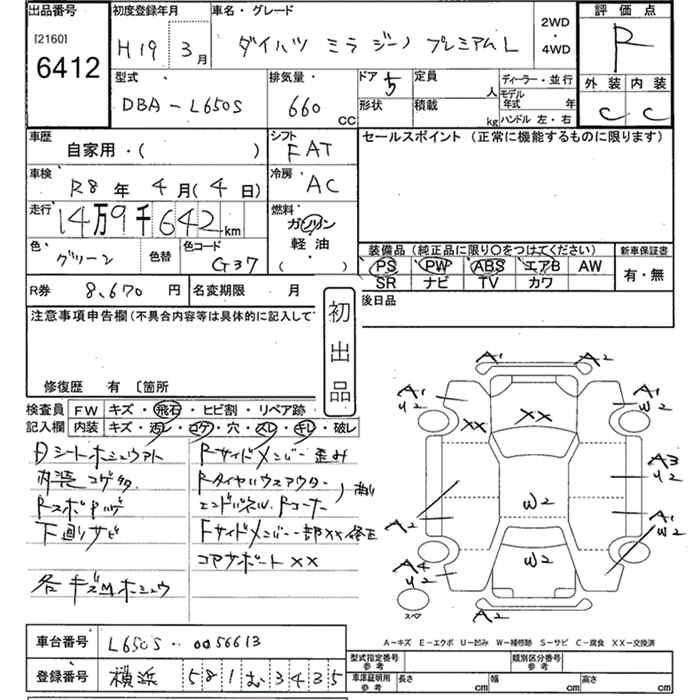 出品番号 初度登録年月 車名・グレード 評価点
[2160] 6412 H19年 3月 ダイハツ ミラジーノ プレミアムL 2WD・4WD R
型式 排気量・ ドア 定員 ディーラー・並行 外装 内装
DBA-L650S 660 CC 5 人 モデル年式 年 C C
形状 積載 kg ハンドル 左・右
車歴 シフト セールスポイント (正常に機能するものに限ります)
自家用・( ) FAT
車検 R8年 4月(4日) 冷房 AC
走行 14万9千642km 燃料 ガソリン
軽油
( )
色・ グリーン 色替 色コード G37
装備品 (純正品に限り○をつけてください) 新車保証書
PS PW ABS エアB AW 有・無
SR ナビ TV カワ
R券 8,670 円 名変期限 月 後日品
注意事項申告欄 (不具合内容等は具体的に記入して
初出品
修復歴 有 〔箇所
検査員 FW キズ・飛石・ヒビ割・リペア跡
記入欄 内装 キズ・汚レ・コゲ・穴・スレ・キレ・破レ
Dシートホシュウアト Rサイドメンバー歪み
内装コゲ多 Rタイヤハウスアウター
エンドパネル Rコーナー
下廻りサビ Fサイドメンバー一部XX修正
コアサポートXX
各キズMホシュウ
A1 A2
A1 U2 XX XX A1 W2
A3 U2
A2 W2 A1 W2
A4 U2 W2
スペア A2
A-キズ E-エクボ U-凹み W-補修跡 S-サビ C-腐食 XX-交換済
車台番号 L650S-0056613
型式指定番号 参考 類別区分番号 参考
登録番号 横浜 581 む 3435
車庫証明用 参考 長さ cm 幅 cm 高さ cm